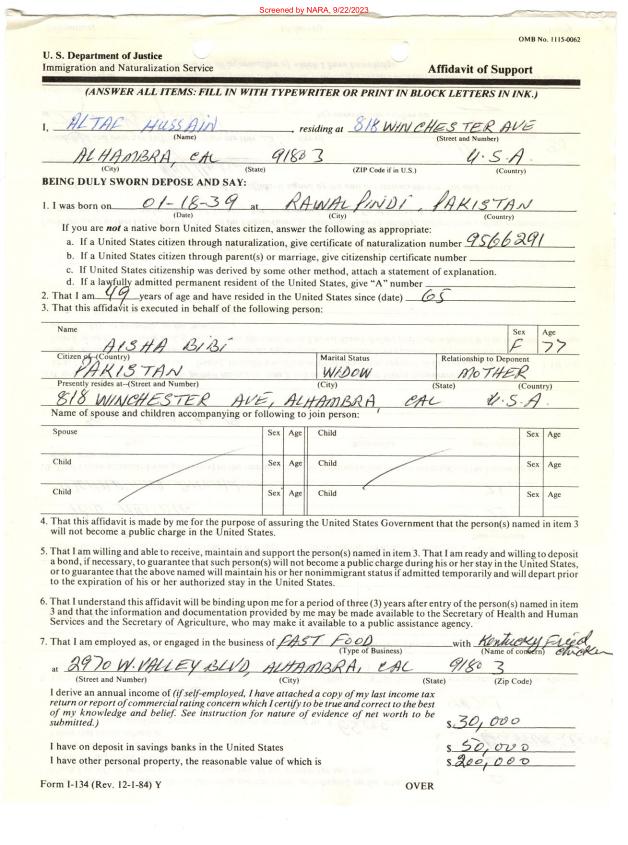 Screened by NARA, 9/22/2023
OMB No. 1115-0062
U. S. Department of Justice
Immigration and Naturalization Service
Affidavit of Support
(ANSWER ALL ITEMS: FILL IN WITH TYPEWRITER OR PRINT IN BLOCK LETTERS IN INK.)
I, ALTAF HUSSAIN, residing at 818 WINCHESTER AVE
(Name) (Street and Number)
ALHAMBRA, CAL 91803 U.S.A.
(City) (State) (ZIP Code if in U.S.) (Country)
BEING DULY SWORN DEPOSE AND SAY:
1. I was born on 01-18-39 at RAWAL PINDI, PAKISTAN
(Date) (City) (Country)
If you are not a native born United States citizen, answer the following as appropriate:
a. If a United States citizen through naturalization, give certificate of naturalization number 9566291
b. If a United States citizen through parent(s) or marriage, give citizenship certificate number
c. If United States citizenship was derived by some other method, attach a statement of explanation.
d. If a lawfully admitted permanent resident of the United States, give "A" number
2. That I am 49 years of age and have resided in the United States since (date) 65
3. That this affidavit is executed in behalf of the following person:
Name Sex Age
AISHA BIBI F 77
Citizen of-(Country) Marital Status Relationship to Deponent
PAKISTAN WIDOW MOTHER
Presently resides at--(Street and Number) (City) (State) (Country)
818 WINCHESTER AVE, ALHAMBRA, CAL U.S.A.
Name of spouse and children accompanying or following to join person:
Spouse Sex Age Child Sex Age
Child Sex Age Child Sex Age
Child Sex Age Child Sex Age
4. That this affidavit is made by me for the purpose of assuring the United States Government that the person(s) named in item 3
will not become a public charge in the United States.
5. That I am willing and able to receive, maintain and support the person(s) named in item 3. That I am ready and willing to deposit
a bond, if necessary, to guarantee that such person(s) will not become a public charge during his or her stay in the United States,
or to guarantee that the above named will maintain his or her nonimmigrant status if admitted temporarily and will depart prior
to the expiration of his or her authorized stay in the United States.
6. That I understand this affidavit will be binding upon me for a period of three (3) years after entry of the person(s) named in item
3 and that the information and documentation provided by me may be made available to the Secretary of Health and Human
Services and the Secretary of Agriculture, who may make it available to a public assistance agency.
7. That I am employed as, or engaged in the business of FAST FOOD with Kentucky Fried chicken
(Type of Business) (Name of concern)
at 2970 W. VALLEY BLVD, ALHAMBRA, CAL 91803
(Street and Number) (City) (State) (Zip Code)
I derive an annual income of (if self-employed, I have attached a copy of my last income tax
return or report of commercial rating concern which I certify to be true and correct to the best
of my knowledge and belief. See instruction for nature of evidence of net worth to be
submitted.) $ 30,000
I have on deposit in savings banks in the United States $ 50,000
I have other personal property, the reasonable value of which is $ 200,000
Form I-134 (Rev. 12-1-84) Y OVER